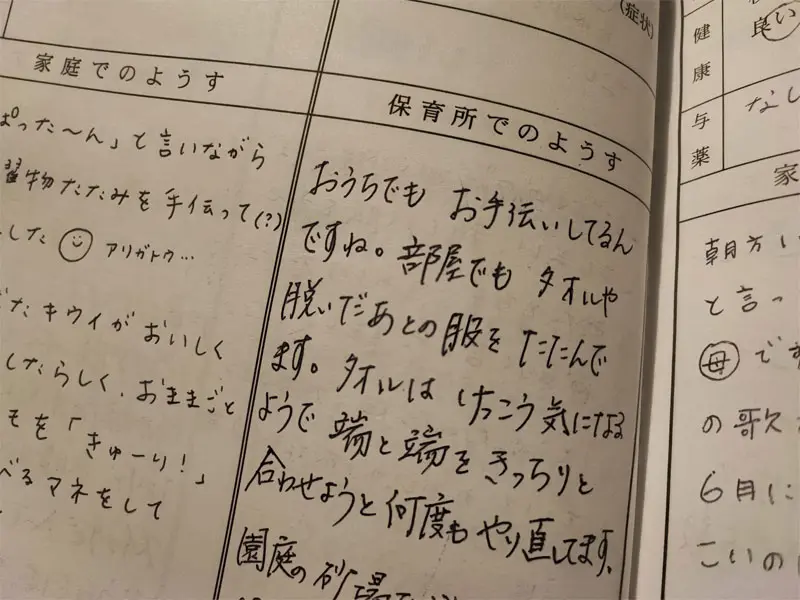 (症状)
家庭でのようす
ぱった〜ん」と言いながら
習物たたみを手伝って(?)
した アリガトウ…
たキウイがおいしく
したらしく、おままごと
モを「きゅーり!」
べるマネをして
保育所でのようす
おうちでも お手伝いしてるん
ですね。部屋でも タオルや
脱いだあとの服を たたんで
ます。タオルは けっこう気になる
ようで 端と端を きっちりと
合わせようと何度も やり直してます。
園庭の 砂場で
健康
良い
与薬
なし
家
朝方
と言っ
母 です
の歌
6月に
こいの